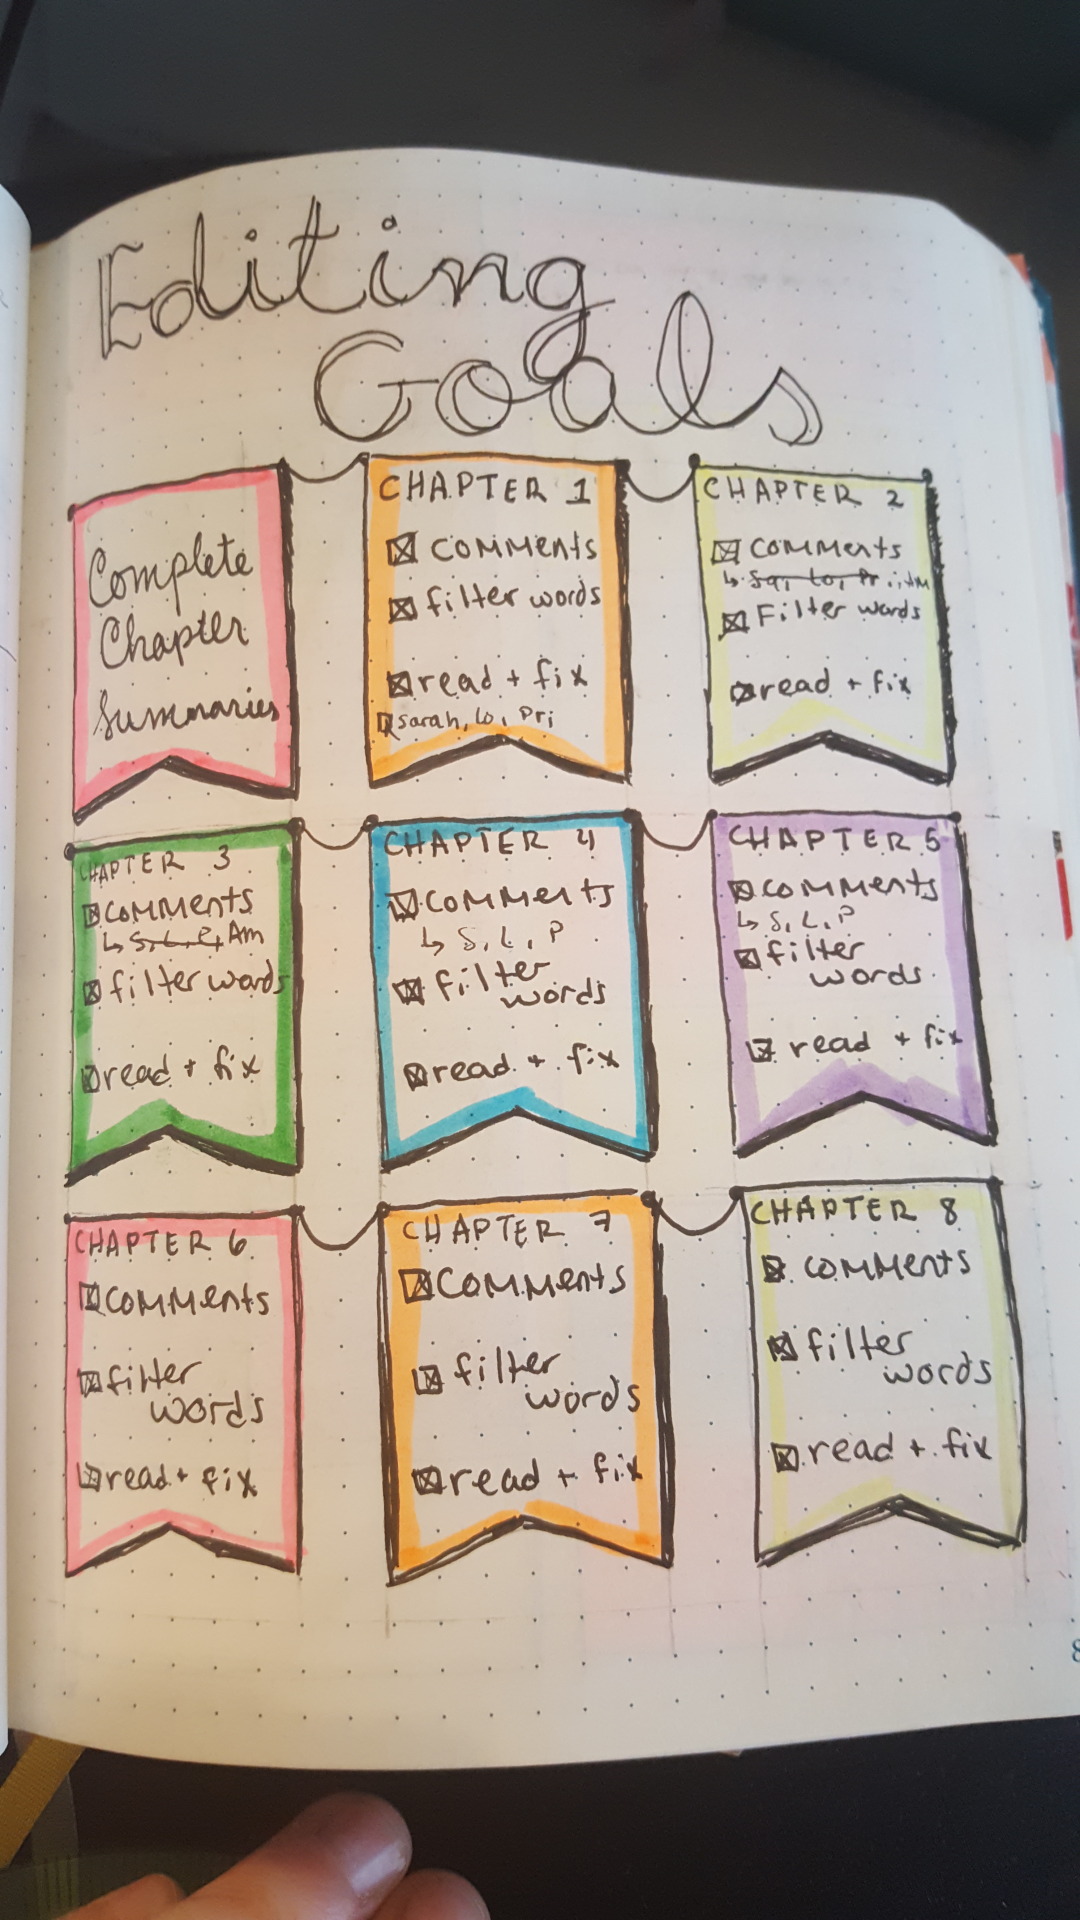 Editing
Goals
Complete
Chapter
Summaries
CHAPTER 1
comments
filter words
read + fix
sarah, lo, pri
CHAPTER 2
comments
↳ Sa, Lo, Pr, Am
Filter words
read + fix
CHAPTER 3
comments
↳ S, L, P, Am
filter words
read + fix
CHAPTER 4
comments
↳ S, L, P
filter
words
read + fix
CHAPTER 5
comments
↳ S, L, P
filter
words
read + fix
CHAPTER 6
comments
filter
words
read + fix
CHAPTER 7
comments
filter
words
read + fix
CHAPTER 8
comments
filter
words
read + fix
8